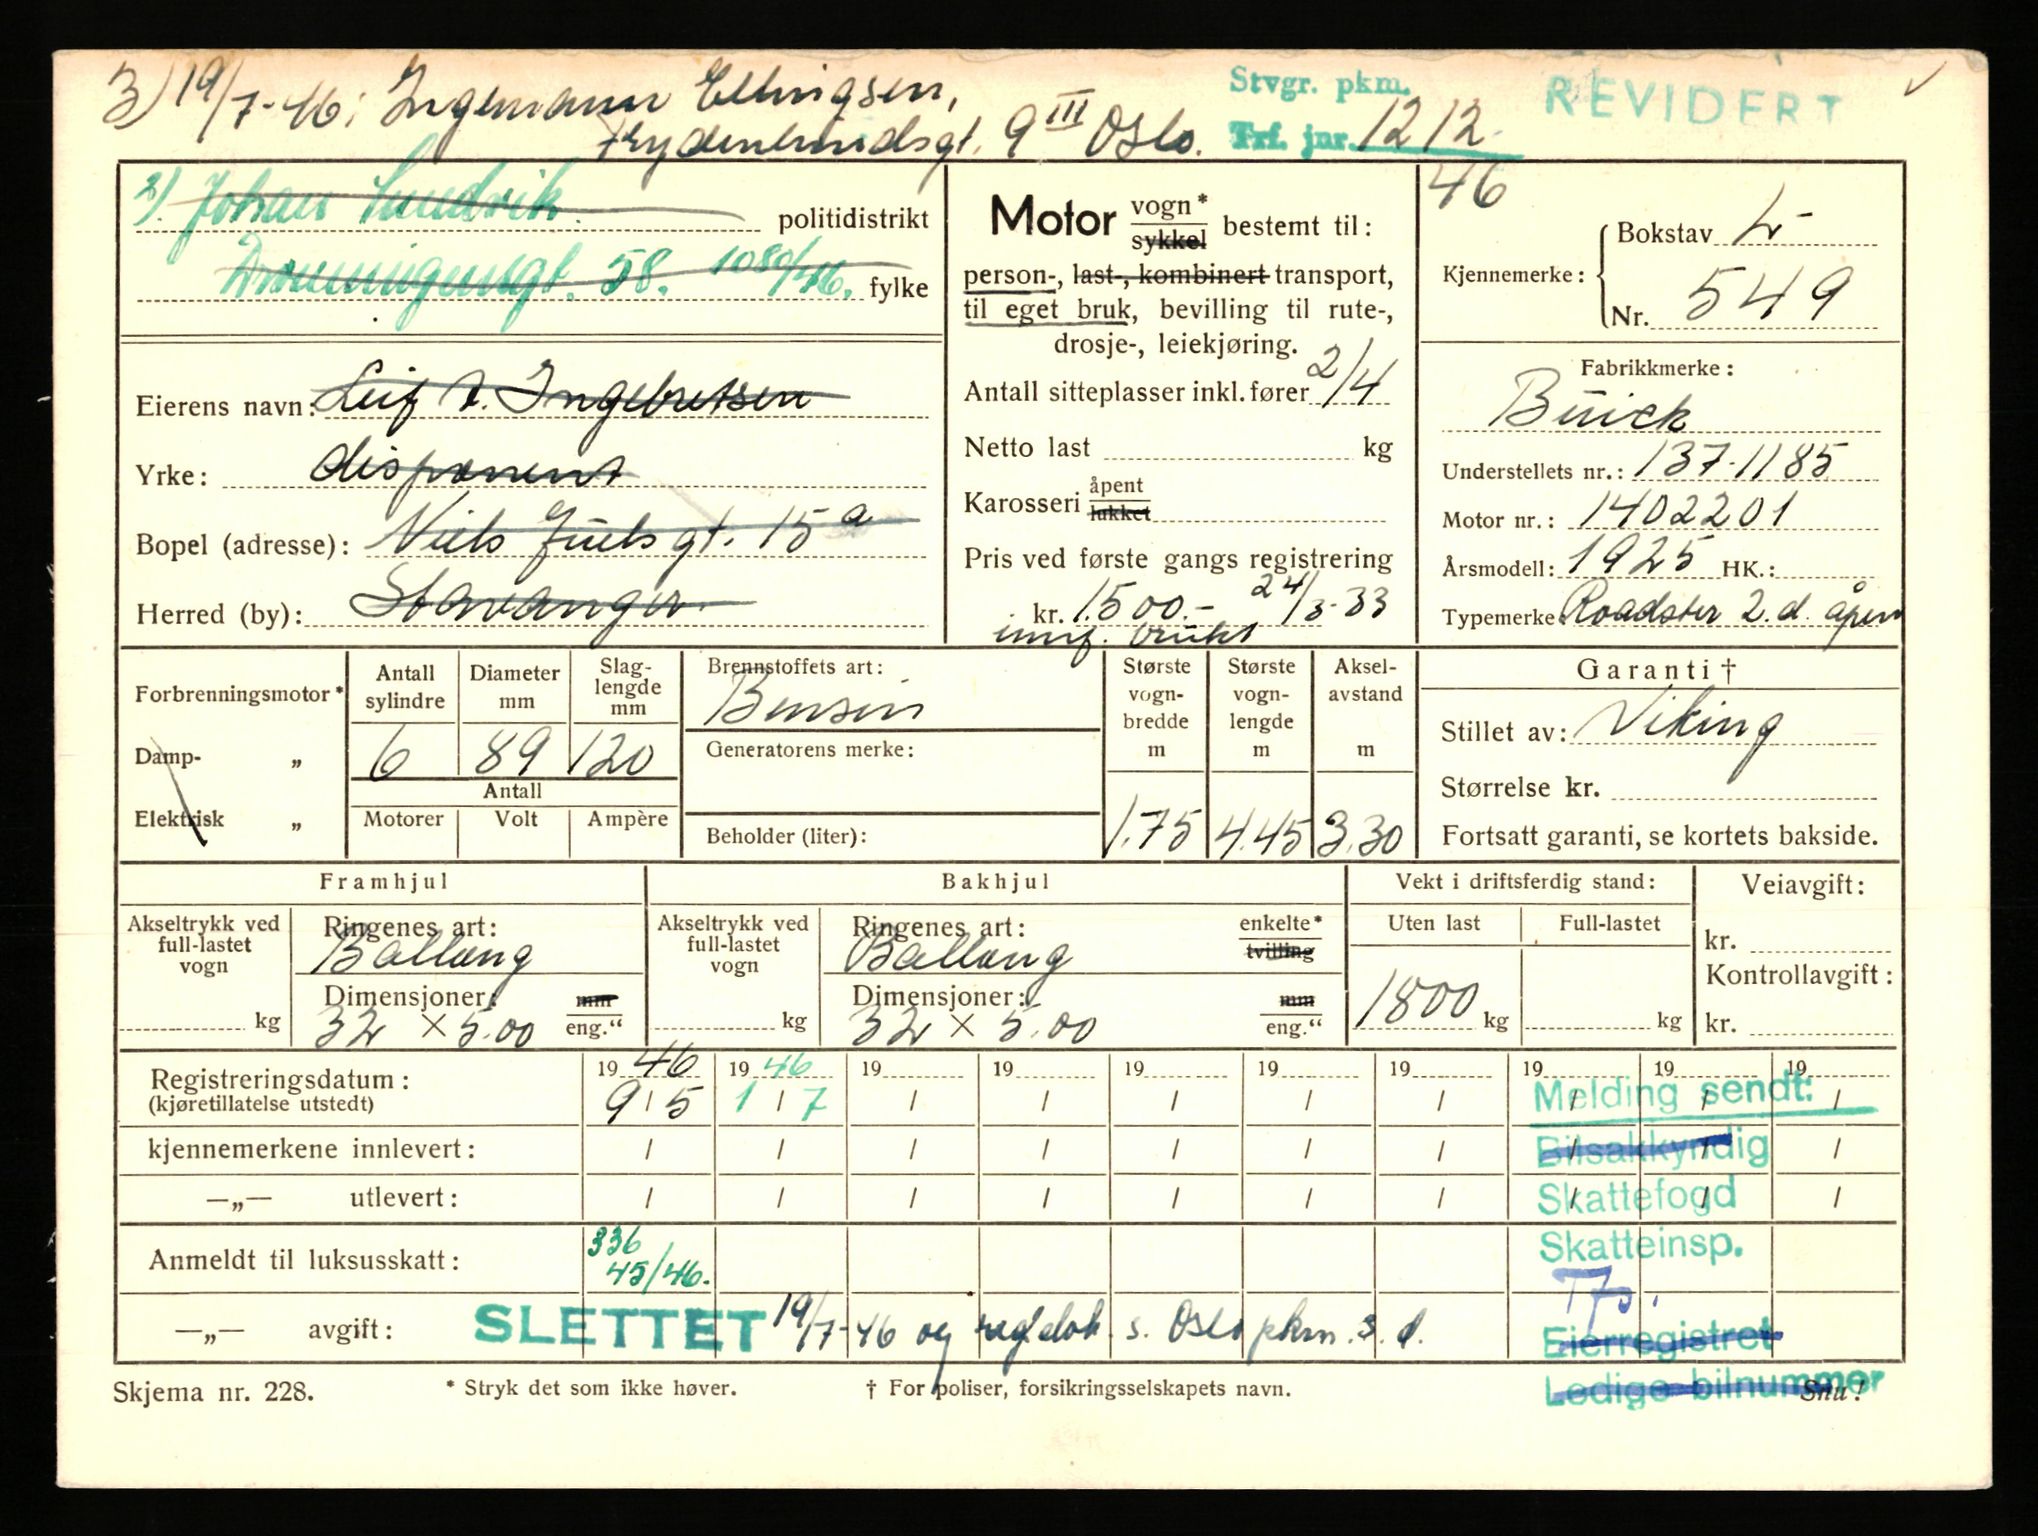 3) 19/7-46: Ingemann Ellingsen,
Frydenlundsgt. 9 III Oslo.
Stvgr. pkm.
Trf. jnr. 1212
46
REVIDERT
2). Johan politidistrikt
Dronningensgt. 58. 1080/46. fylke
Eierens navn: Leif A. Ingebretsen
Yrke: disponent
Bopel (adresse): Niels Juels gt. 15 a
Herred (by): Stavanger
Motor vogn* sykkel bestemt til:
person-, last-, kombinert transport,
til eget bruk, bevilling til rute-,
drosje-, leiekjøring.
Antall sitteplasser inkl. fører 2/4
Netto last kg
Karosseri åpent lukket
Pris ved første gangs registrering
kr. 1500.- 24/3-33
innf. brukt
Kjennemerke: Bokstav L-
Nr. 549
Fabrikkmerke:
Buick
Understellets nr.: 137-1185
Motor nr.: 1402201
Årsmodell: 1925 HK.:
Typemerke Roadster 2.d. åpen
Forbrenningsmotor*
Damp- „
Elektrisk „
Antall sylindre
Diameter mm
Slaglengde mm
6 89 120
Antall
Motorer Volt Ampère
Brennstoffets art:
Bensin
Generatorens merke:
Beholder (liter):
Største vogn-bredde m
Største vogn-lengde m
Aksel-avstand m
1.75 4.45 3.30
Garanti †
Stillet av: Viking
Størrelse kr.
Fortsatt garanti, se kortets bakside.
Framhjul
Akseltrykk ved full-lastet vogn
kg
Ringenes art:
Ballong
Dimensjoner: mm
32 × 5.00 eng.“
Bakhjul
Akseltrykk ved full-lastet vogn
kg
Ringenes art: enkelte*
Ballong tvilling
Dimensjoner: mm
32 × 5.00 eng.“
Vekt i driftsferdig stand:
Uten last Full-lastet
1800 kg kg
Veiavgift:
kr.
Kontrollavgift:
kr.
Registreringsdatum: 19 46 19 46 19 19 19 19 19 19 19 19
(kjøretillatelse utstedt) 9 / 5 1 / 7 / / / / / / / /
kjennemerkene innlevert: / / / / / / / / / /
—„— utlevert: / / / / / / / / / /
Anmeldt til luksusskatt: 336
45/46.
—„— avgift: SLETTET 19/7-46 og reg.dok. s. Oslo pkm. s. d.
Melding sendt:
Bilsakkyndig
Skattefogd
Skatteinsp.
Eierregistret
Ledige bilnummer
Skjema nr. 228.
* Stryk det som ikke høver.
† For poliser, forsikringsselskapets navn.
Snu!